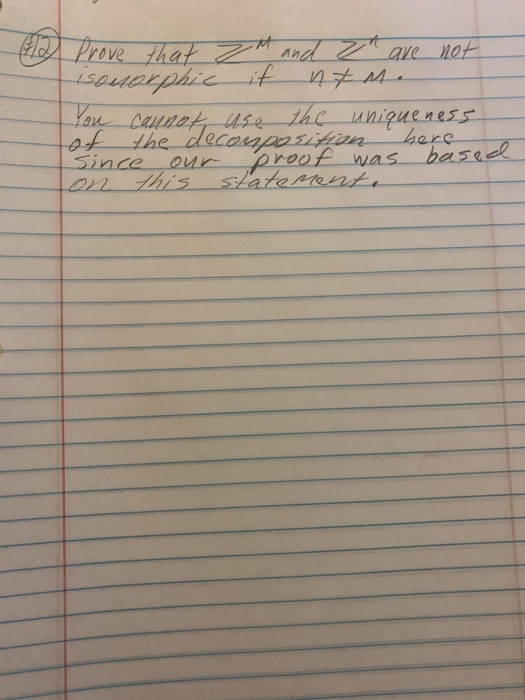 #12 Prove that ℤᴹ and ℤⁿ are not
isomorphic if n ≠ M.
You cannot use the uniqueness
of the decomposition here
since our proof was based
on this statement.